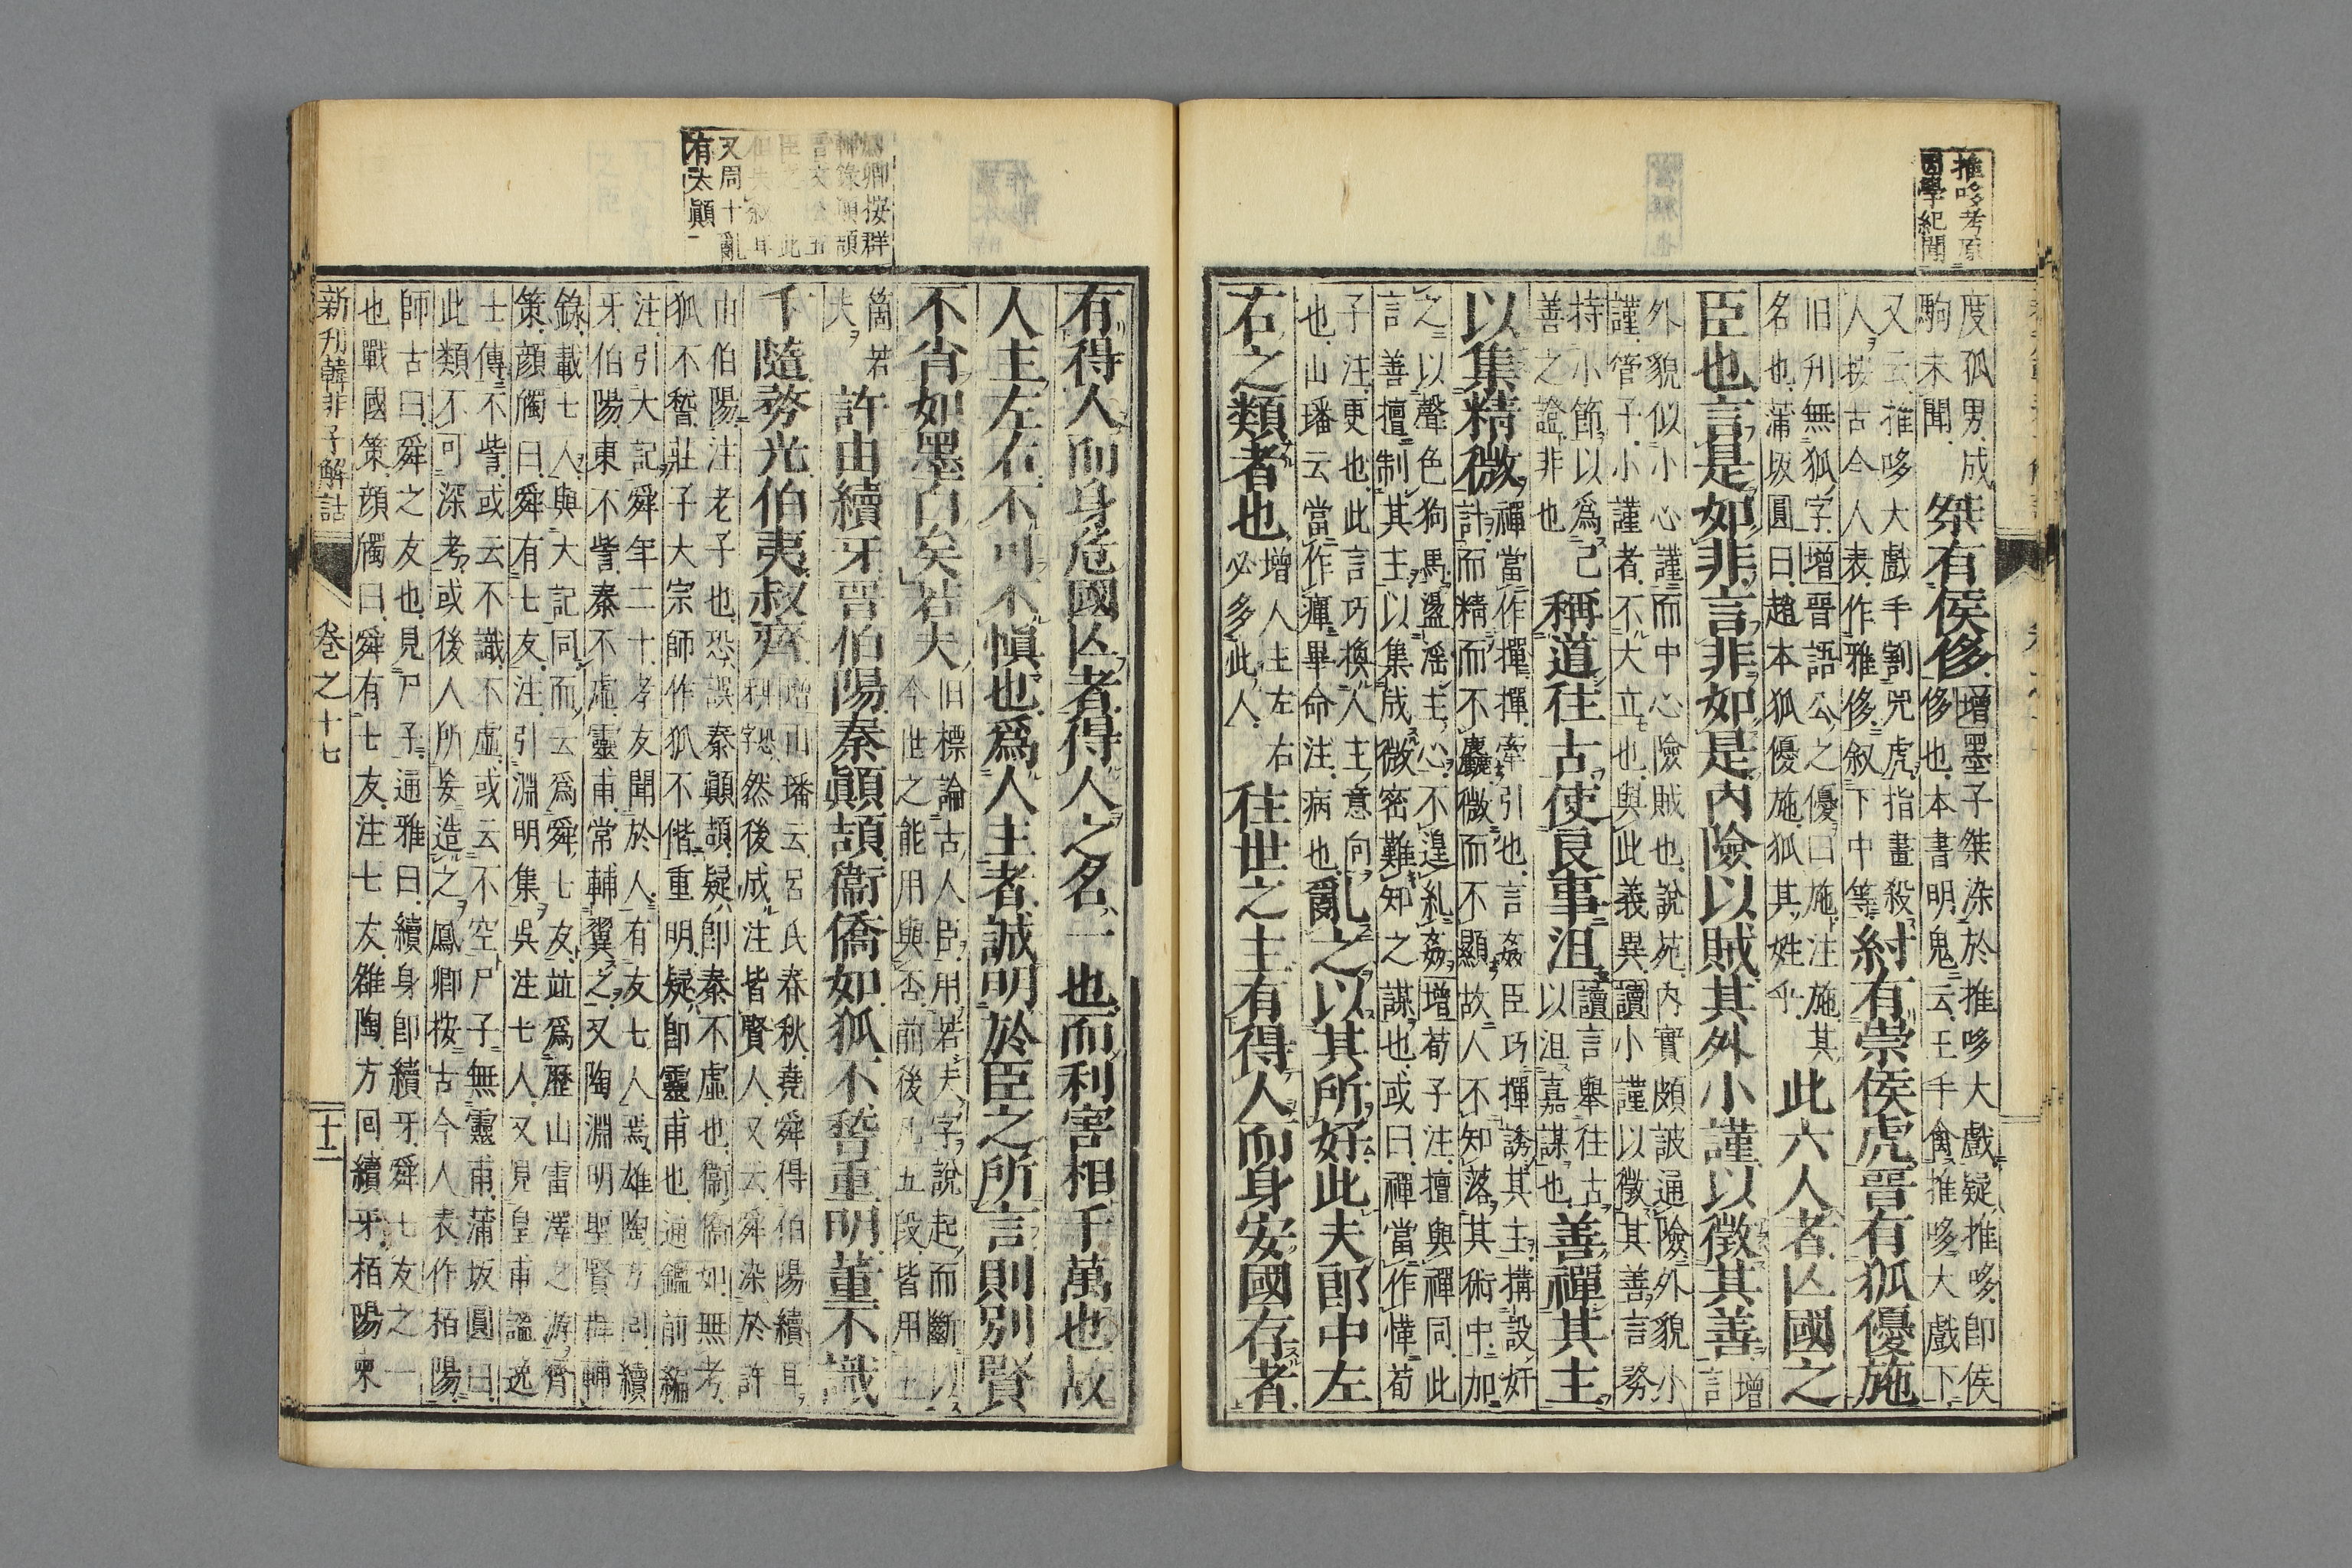 推哆考原
困學紀聞
度狐男成
駒未聞
桀有侯侈
增墨子桀染於推哆大戲疑推哆即侯
侈也本書明鬼云王手禽推哆大戲下
又云推哆大戲手割兕虎指畫殺
人按古今人表作雅侈叙下中等
紂有崇侯虎晉有狐優施
旧刋無狐字增晋語公之優曰施注施其
名也蒲坂圓曰趙本狐優施狐其姓乎
此六人者亾國之
臣也言是如非言非如是內險以賊其外小謹以徵其善
增
言
外貌似小心謹而中心險賊也說苑内實頗詖通險外貌小
謹管子小謹者不大立也與此義異讀小謹以徵其善言務
持小節以爲己
善之證非也
稱道往古使良事沮
讀言舉往古
以沮嘉謀也
善禪其主
以集精微
禪當作撣撣牽引也言姦臣巧撣誘其主搆設奸
計而精而不麤微而不顯故人不知落其術中加
之以聲色狗馬盪滛主心不遑糺姦增荀子注擅與禪同此
言善擅制其主以集成微密難知之謀也或曰禪當作憚荀
子注更也此言巧換人主意向
也山璠云當作癉畢命注病也
亂之以其所好此夫郎中左
右之類者也
增人主左右
必多此人
往世之主有得人而身安國存者
有得人而身危國亾者得人之名一也而利害相千萬也故
人主左右不可不愼也爲人主者誠明於臣之所言則別賢
不肖如墨白矣若夫
旧標論古人臣用若夫字說起而斷以
今世之能用與否前後凡五段皆用五
箇若
夫
許由續牙晋伯陽秦顚頡衞僑如狐不稽重明董不識
卞隨務光伯夷叔齊
增山璠云呂氏春秋堯舜得伯陽續耳
然後成注皆賢人又云舜染於許
由伯陽注老子也恐誤秦顚頡疑即秦不虛也衞僑如無考
狐不稽莊子大宗師作狐不偕重明疑即靈甫也通鑑前編
注引大記舜年二十孝友聞於人有友七人焉雄陶方回續
牙伯陽東不訾秦不虛靈甫常輔翼之又陶淵明聖賢群輔
錄載七人與大記同而云爲舜七友竝爲歷山雷澤之游齊
策顔斶曰舜有七友注引淵明集吳注七人又見皇甫謐逸
士傳不訾或云不識不虛或云不空尸子無靈甫蒲坂圓曰
此類不可深考或後人所妄造之鳳卿按古今人表作栢陽
師古曰舜之友也見尸子通雅曰續身即續牙舜七友之一
也戰國策顔斶曰舜有七友注七友雒陶方回續牙栢陽東
又周十亂
有太顚
新刋韓非子解詁
卷之十七
十二